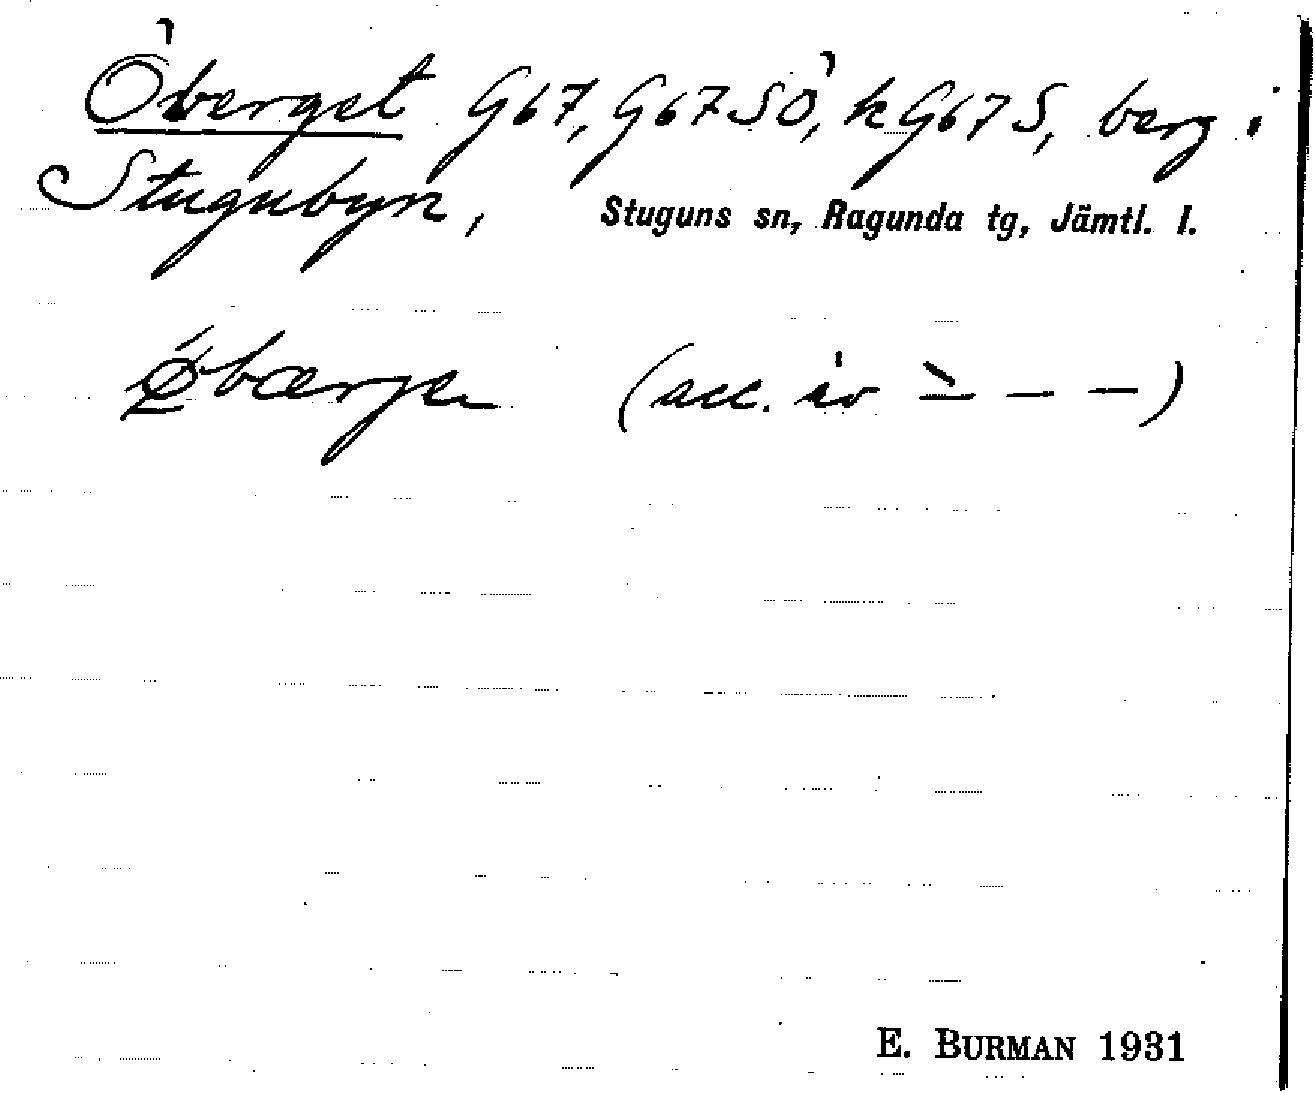 Öberget G67, G67SÖ, k G67S, berg i
Stugubyn, Stuguns sn, Ragunda tg, Jämtl. l.
(acc. är `– – –)
E. BURMAN 1931